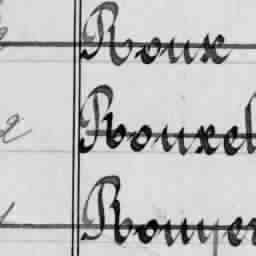 Roux
Rouxel
Rouyer